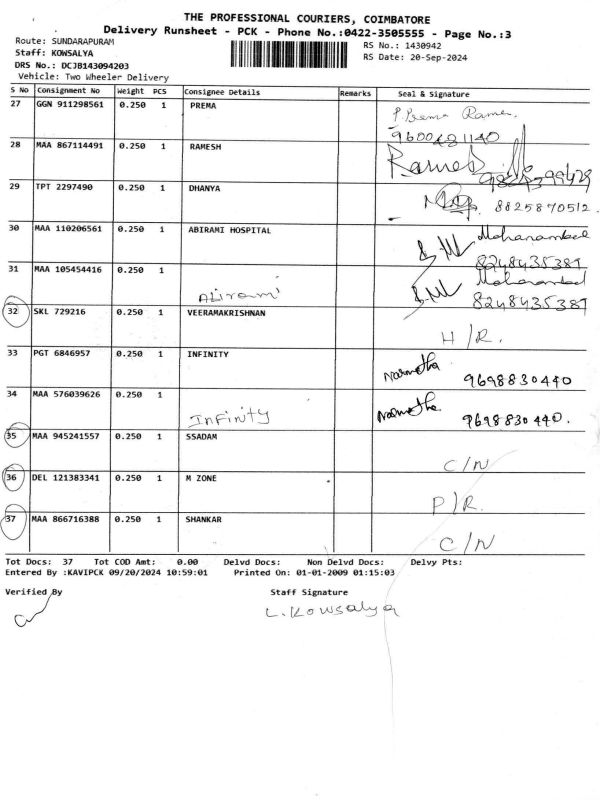 THE PROFESSIONAL COURIERS, COIMBATORE
Delivery Runsheet - PCK - Phone No.:0422-3505555 - Page No.:3
Route: SUNDARAPURAM
RS No.: 1430942
Staff: KOWSALYA
RS Date: 20-Sep-2024
DRS No.: DCJB143094203
Vehicle: Two Wheeler Delivery
S No Consignment No Weight PCS Consignee Details Remarks Seal & Signature
27 GGN 911298561 0.250 1 PREMA P. Prema Rames
9600481140
28 MAA 867114491 0.250 1 RAMESH Ramesh
29 TPT 2297490 0.250 1 DHANYA 8825870512
30 MAA 110206561 0.250 1 ABIRAMI HOSPITAL Mohanambal
8248435387
31 MAA 105454416 0.250 1 Abirami Mohanambal
8248435387
32 SKL 729216 0.250 1 VEERAMAKRISHNAN H/R.
33 PGT 6846957 0.250 1 INFINITY Narmetha 9698830440
34 MAA 576039626 0.250 1 Infinity Narmetha 9698830440.
35 MAA 945241557 0.250 1 SSADAM C/N
36 DEL 121383341 0.250 1 M ZONE P/R.
37 MAA 866716388 0.250 1 SHANKAR C/N
Tot Docs: 37 Tot COD Amt: 0.00 Delvd Docs: Non Delvd Docs: Delvy Pts:
Entered By :KAVIPCK 09/20/2024 10:59:01 Printed On: 01-01-2009 01:15:03
Verified By Staff Signature
L. Kowsalya